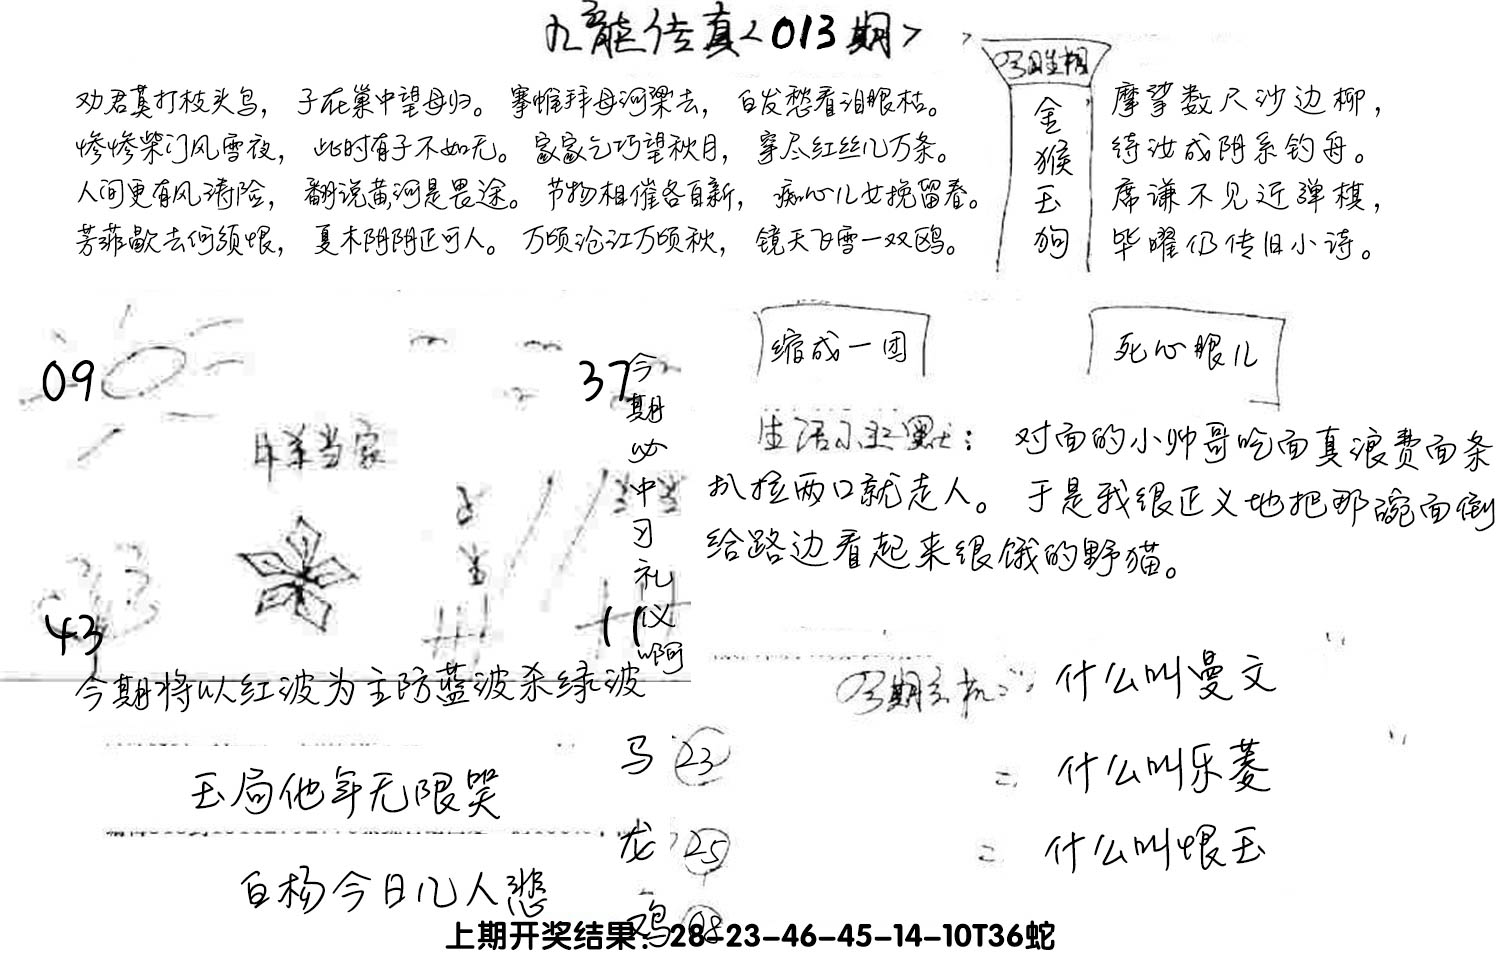 九龙传真<013期>
劝君莫打枝头鸟，子在巢中望母归。搴帷拜母河梁去，白发愁看泪眼枯。
惨惨柴门风雪夜，此时有子不如无。家家乞巧望秋月，穿尽红丝几万条。
人间更有风涛险，翻说黄河是畏途。节物相催各自新，痴心儿女挽留春。
芳菲歇去何须恨，夏木阴阴正可人。万顷沧江万顷秋，镜天飞雪一双鸥。
今期生相
金猴玉狗
摩挲数尺沙边柳，
待汝成阴系钓舟。
席谦不见近弹棋，
毕曜仍传旧小诗。
09
37
羊当家
43
11
今期必中习礼仪啊
今期将以红波为主防蓝波杀绿波
玉局他年无限哭
白杨今日几人悲
马 23
龙 25
鸡 08
缩成一团
死心眼儿
生活小幽默：对面的小帅哥吃面真浪费面条
扒拉两口就走人。于是我很正义地把那碗面倒
给路边看起来很饿的野猫。
今期玄机：什么叫曼文
什么叫乐菱
什么叫恨玉
上期开奖结果：28-23-46-45-14-10T36蛇